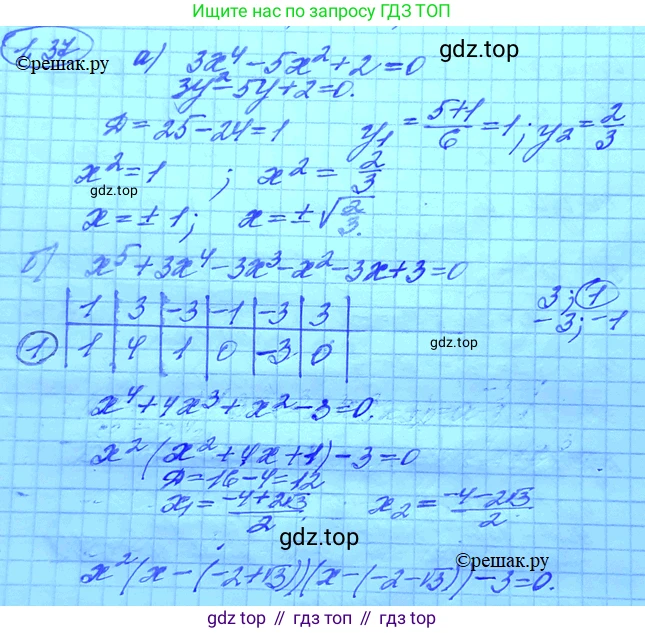 Ищет нас по запросу ГДЗ ТОП
1.37 а) 3x⁴-5x²+2=0 gdz.top
©reшак.ру
3y²-5y+2=0.
D=25-24=1 y₁=(5+1)/6=1; y₂=2/3
x²=1; x²=2/3
gdz.top
x=±1; x=±√(2/3).
б) x⁵+3x⁴-3x³-x²-3x+3=0
|1|3|-3|-1|-3|3| 3; 1
-3; -1
1 |1|4|1|0|-3|0| gdz.top
x⁴+4x³+x²-3=0.
x²(x²+4x+1)-3=0
D=16-4=12
x₁=(-4+2√3)/2 x₂=(-4-2√3)/2
gdz.top
©reшак.ру
x²(x-(-2+√3))(x-(-2-√3))-3=0.
gdz top // гдз топ // gdz.top